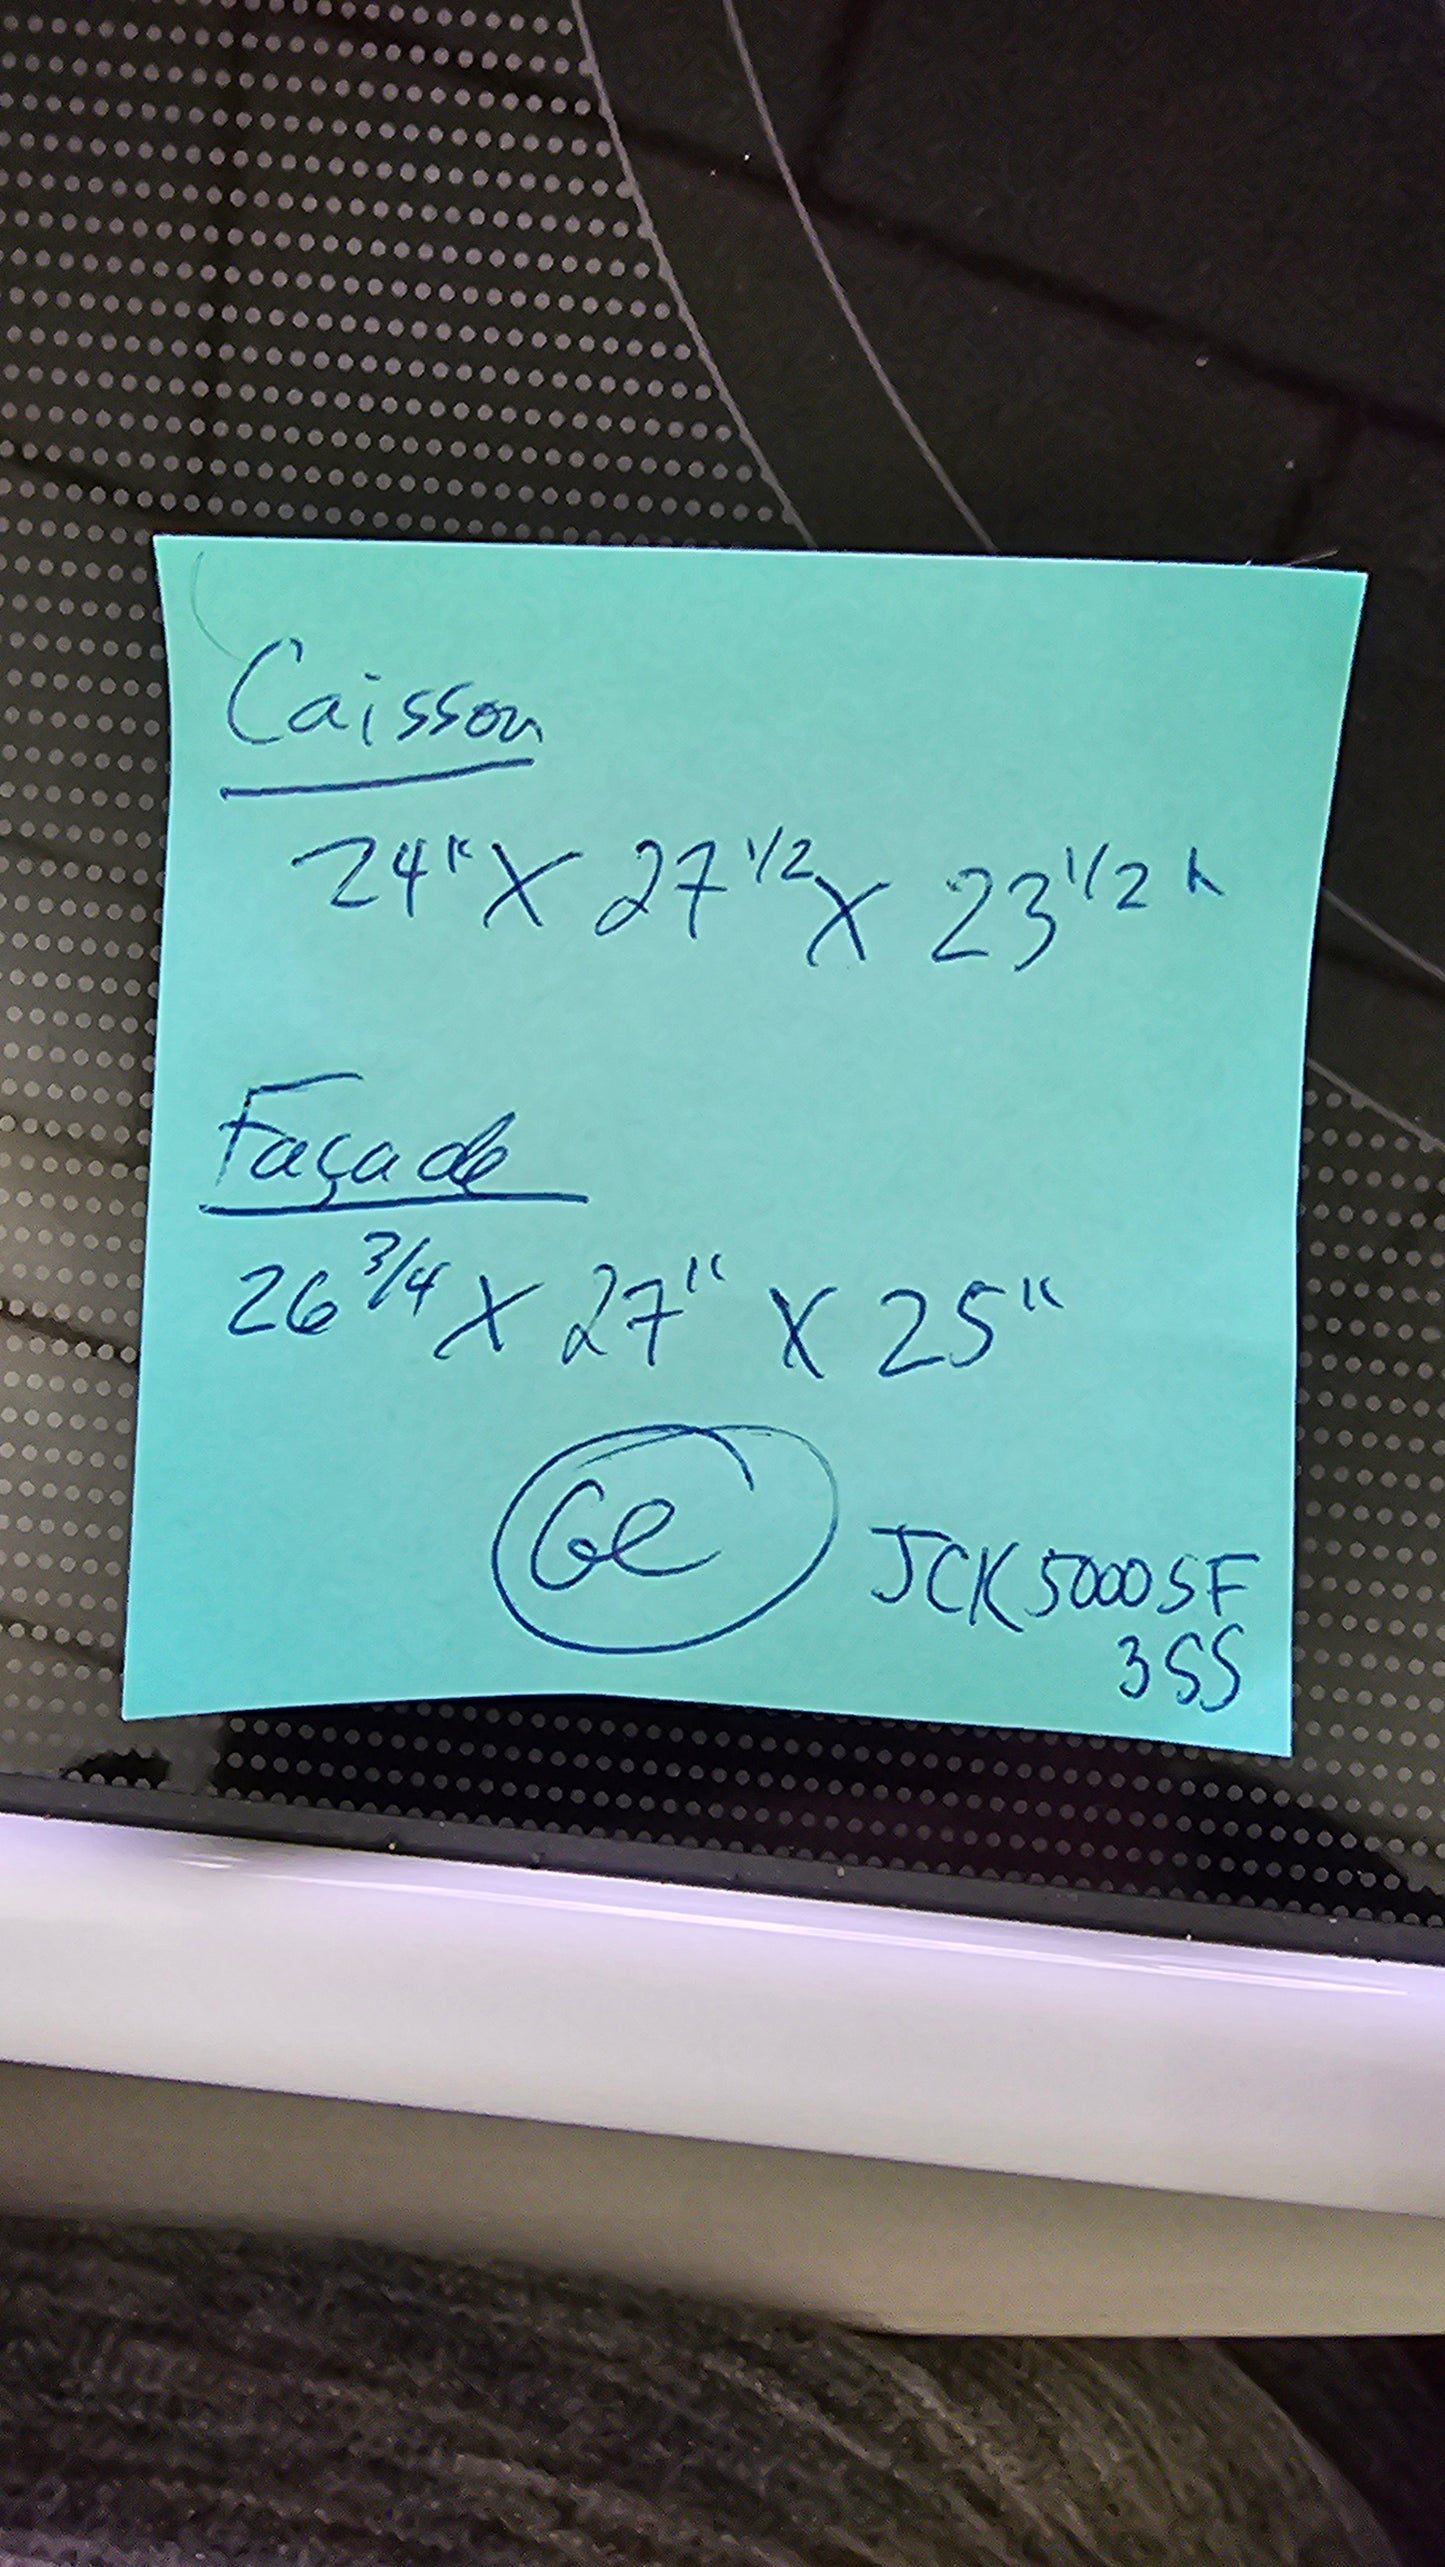 Caisson
24" X 27 1/2 X 23 1/2 "
Façade
26 3/4 X 27" X 25"
GE JCK5000SF
3SS